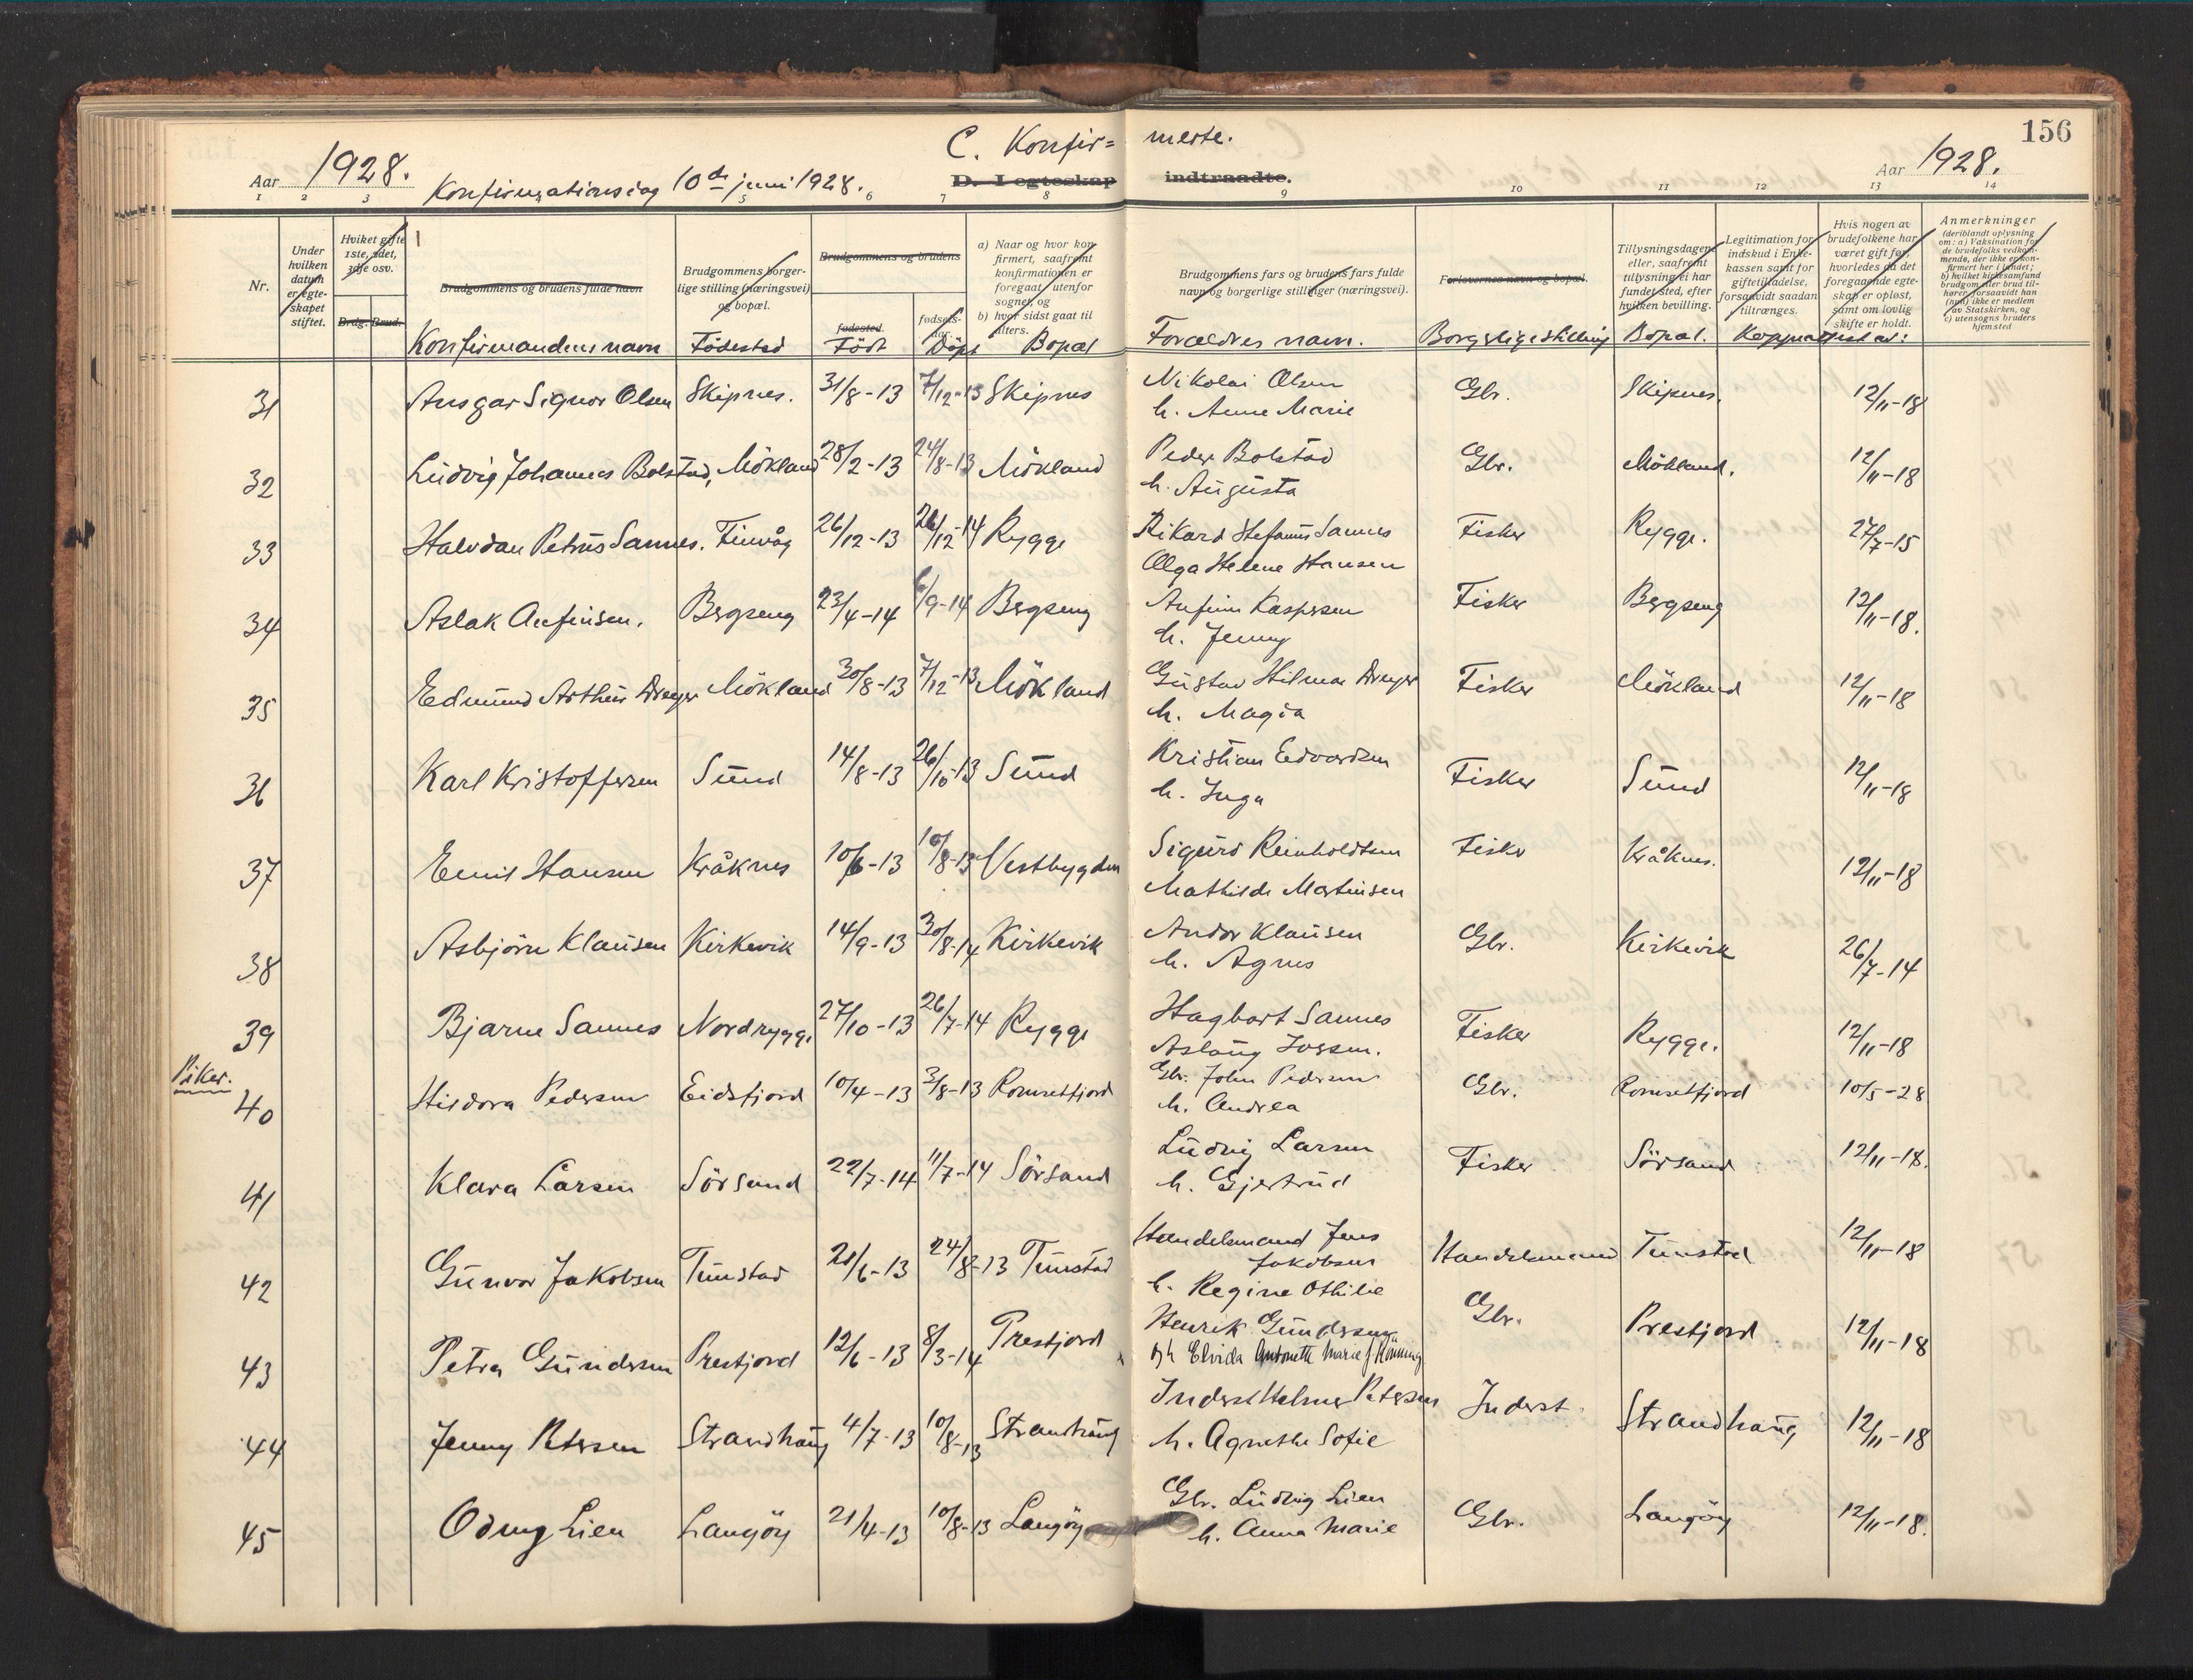 156
C. Konfir= merte.
Aar 1928. Konfirmationsdag 10de juni 1928. D. Legteskap indtraadte. Aar 1928.
1 2 3 4 5 6 7 8 9 10 11 12 13 14
Nr.
Under hvilken datum er egteskapet stiftet.
Hvilket gifte 1ste, 2det, 3dje osv.
Brdg. Brud.
Brudgommens og brudens fulde navn
Brudgommens borgerlige stilling (næringsvei) og bopæl.
Brudgommens og brudens
fødested
fødsels-aar
a) Naar og hvor konfirmert, saafremt konfirmationen er foregaat utenfor sognet, og
b) hvor sidst gaat til alters.
Brudgommens fars og brudens fars fulde navn og borgerlige stillinger (næringsvei).
Forlovernes navn og bopæl.
Tillysningsdagene eller, saafremt tillysning ei har fundet sted, efter hvilken bevilling.
Legitimation for indskud i Enkekassen samt for giftetilladelse, forsaavidt saadan tiltrænges.
Hvis nogen av brudefolkene har været gift før, hvorledes da det foregaaende egteskap er opløst, samt om lovlig skifte er holdt.
Anmerkninger (deriblandt oplysning om: a) Vaksination for de brudefolks vedkommende, der ikke er konfirmert her i landet; b) hvilket kirkesamfund brudgom eller brud tilhører, forsaavidt han (hun) ikke er medlem av Statskirken, og c) utensogns bruders hjemsted
Konfirmandens navn Födested Födt Döpt Bopæl Forældres navn. Borgerlige stilling Bopæl. Koppnat attest av:
31 Ansgar Signor Olsen Skipnes. 31/8-13 7/12-13 Skipnes Nikolai Olsen Gbr. Skipnes. 12/11-18
h. Anne Marie
32 Ludvig Johannes Bolstad, Mökland 28/2-13 24/8-13 Mökland Peder Bolstad Gbr. Mökland. 12/11-18
h. Augusta
33 Halvdan Petrus Sannes. Finvåg 26/12-13 26/12-14 Rygge Rikard Stefanus Sannes Fisker Rygge. 27/7-15
Olga Helene Hansen
34 Aslak Anfinsen. Bergseng 23/4-14 6/9-14 Bergseng Anfinn Kaspersen Fisker Bergseng 12/11-18.
h. Jenny
35 Edmund Arthur Dreyer Mökland 30/8-13 7/12-13 Mökland Gustav Hilmar Dreyer Fisker Mökland 12/11-18
h. Magia
36 Karl Kristoffersen Sund 14/8-13 26/10-13 Sund Kristian Edvardsen Fisker Sund 12/11-18
h. Inga
37 Emil Hansen Kråknes 10/6-13 10/8-13 Vestbygden Sigurd Reinholdtsen Fisker Kråknes. 12/11-18
Mathilde Martinsen
38 Asbjörn Klausen Kirkevik 14/9-13 30/8-14 Kirkevik Andor Klausen Gbr. Kirkevik 26/7-14
h. Agnes
39 Bjarne Sannes Nordrygge 27/10-13 26/7-14 Rygge Hagbart Sannes Fisker Rygge. 12/11-18
Aslaug Iversen.
Piker.
40 Hildora Pedersen Eidsfjord 10/4-13 3/8-13 Romsetfjord Gbr. John Pedersen Gbr. Romsetfjord 10/5-28
h. Andrea
41 Klara Larsen Sörsand 22/7-14 11/7-14 Sörsand Ludvig Larsen Fisker Sörsand 12/11-18.
h. Gjertrud
42 Gunvor Jakobsen Tunstad 21/6-13 24/8-13 Tunstad Handelsmand Jens Handelsmand Tunstad 12/11-18
Jakobsen
h. Regine Othilie
43 Petra Gundersen Prestjord 12/6-13 8/3-14 Prestjord Henrik Gundersen Gbr. Prestjord 12/11-18
og h Elvida Antonette Marie f. Konning
44 Jenny Petersen Strandhaug 4/7-13 10/8-13 Strandhaug Inderst Helmer Petersen Inderst Strandhaug 12/11-18
h. Agnethe Sofie
45 Odny Lien Langöy 21/4-13 10/8-13 Langöy Gbr. Ludvig Lien Gbr. Langöy 12/11-18.
h. Anna Marie